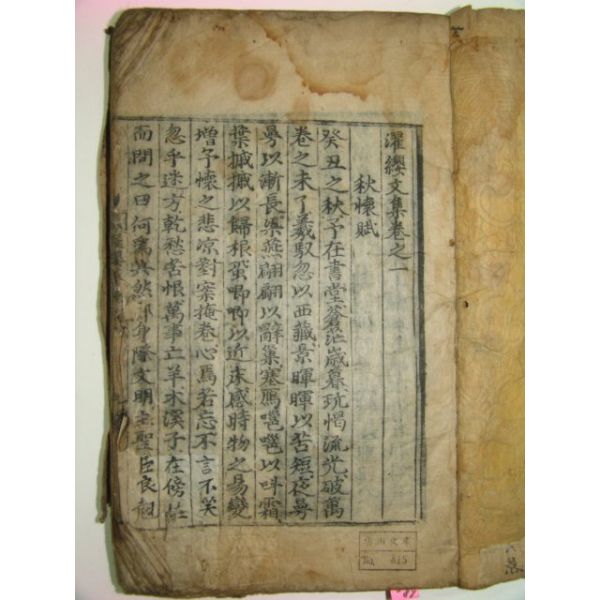 濯纓文集卷之一
秋懷賦
癸丑之秋予在書堂蒼茫歲暮玩愒流光破萬
卷之未了羲馭忽以西藏景暉暉以苦短夜曼
曼以漸長梁燕翩翩以辭巢塞鴈嗈嗈以叫霜
葉摵摵以歸根蛩唧唧以近床感時物之易變
增予懷之悲凉對案掩卷心焉若忘不言不笑
忽乎迷方乾愁苦恨萬事亡羊木溪子在傍
而問之曰何爲其然 身際文明主聖臣良
No. 815